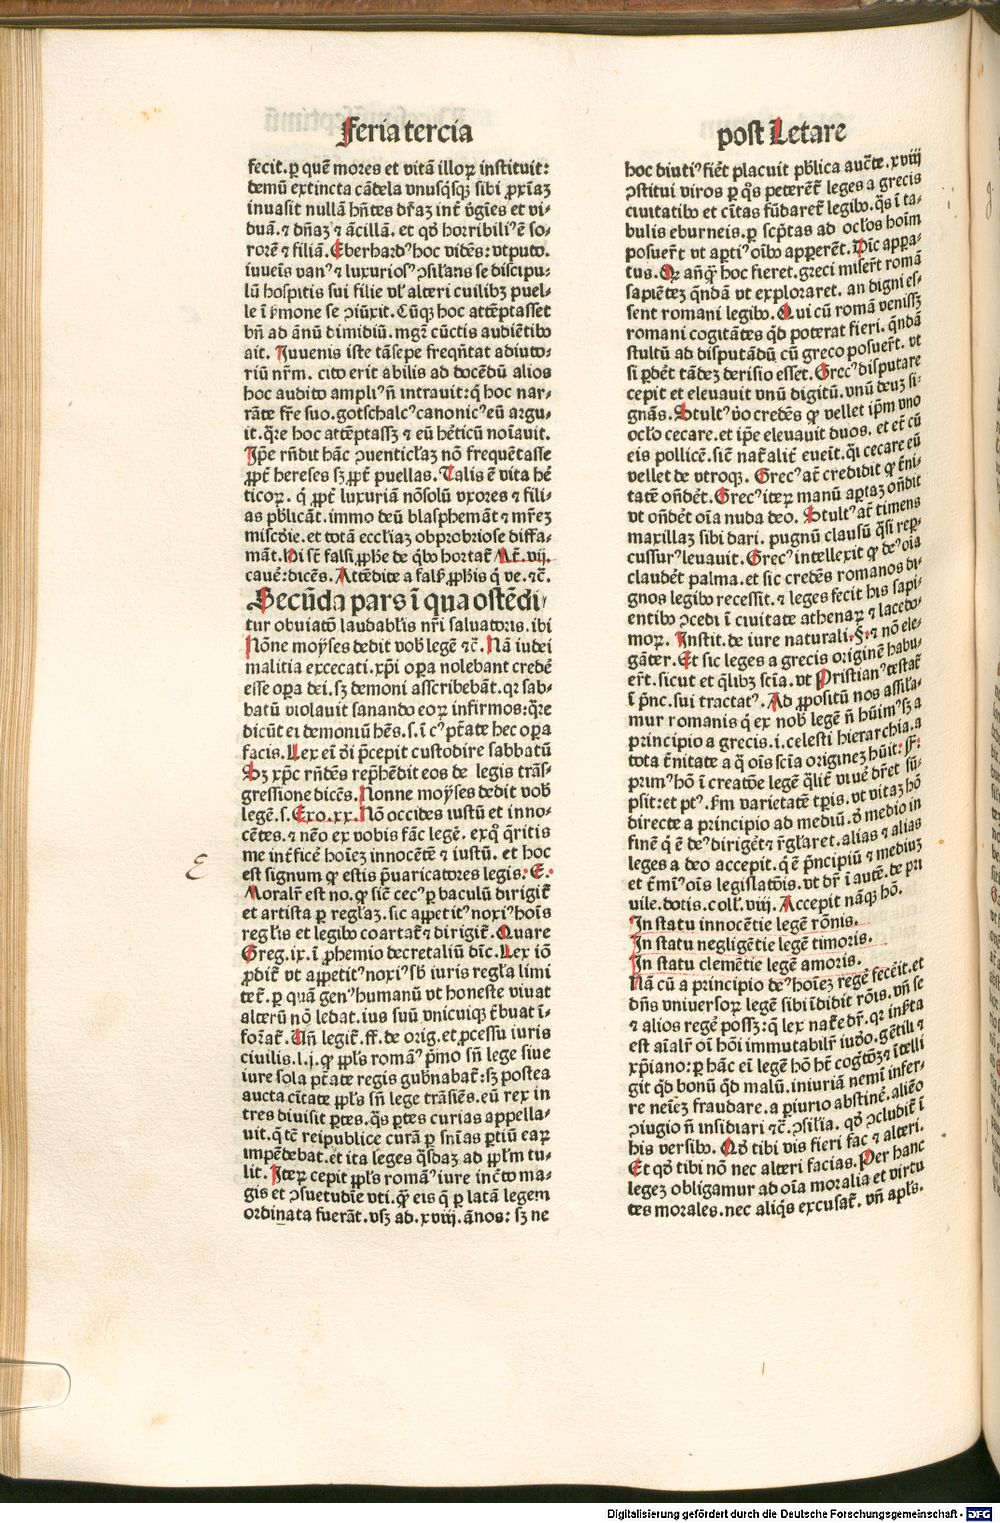 Feria tercia
fecit. ꝑ quē mores et vitā illoꝝ instituit:
demū extincta cādela vnusq̄sqꝫ sibi ꝓxīaꝫ
inuasit nullā hn̄tes dr̄aꝫ int̄ v̄gīes et vi-
duā. ⁊ dn̄aꝫ ⁊ ācillā. et qd̄ horribiliꝰ ē so-
rorē ⁊ filiā. Eberhardꝰ hoc vidēs: vt puto.
iuueīs vanꝰ ⁊ luxuriosꝰ ↄsilās se discipu-
lū hospitis sui filie vl̓ alteri cuilibꝫ puel-
le ī ẜmone se ↄiūxit. Cūqꝫ hoc attēptasset
bn̄ ad ānū dimidiū. mgr̄ cūctis audiētibꝰ
ait. Iuuenis iste tāsepe freqn̄tat adiuto-
riū nr̄m. cito erit abilis ad docēdū alios
hoc audito ampliꝰ n̄ intrauit: q̇ hoc nar-
rāte fr̄e suo. gotschalcꝰ canonicꝰ eū argu-
it. q̄re hoc attēptassꝫ ⁊ eū hēticū noīauit.
Ip̄e rn̄dit hāc ↄuenticl̓aꝫ nō frequētasse
ꝓpt̄ hereses sꝫ ꝓpt̄ puellas. Talis ē vita hē
ticoꝝ. q̇ ꝓpt̄ luxuriā nōsolū vxores ⁊ fili-
as pb̓licāt. immo deū blasphemāt ⁊ mr̄eꝫ
miscd̓ie. et totā eccl̓iaꝫ obprobriose diffa-
māt. Hi st̄ falsi ꝓph̓e de q̇bꝰ hortat̄ Mt̄. vij.
cauēt̄ dicēs. Attēdite a fals̓ ꝓph̓is q̇ ve. ⁊c̄.
Secūda pars ī qua ostēdi
tur obuiatō laudabl̓is nr̄i saluatoris. ibi
Nōne moyses dedit vob̓ legē ⁊c̄. Nā iudei
malitia excecati. xp̄i oꝑa nolebant credē
esse oꝑa dei. sꝫ demoni asscribebāt. qꝛ sab-
batū violauit sanando eoꝝ infirmos: q̄re
dicūt ei demoniū hēs. s. ī cꝰ pt̄ate hec oꝑa
facis. Lex eī d̄i p̄cepit custodire sabbatū
Sꝫ xp̄c rn̄dēs rep̄hēdit eos de legis trās-
gressione dicēs. Nonne moyses dedit vob̓
legē. s. Exo. xx. Nō occides iustū et inno-
cētes. ⁊ nēo ex vobis fāc legē. exq̄ q̄ritis
me int̄ficē hoīeꝫ innocētē ⁊ iustū. et hoc
est signum ꝙ estis p̄uaricatores legis. E.
Moralr̄ est no. ꝙ sic̄ cecꝰ ꝑ baculū dirigit̄
et artista ꝑ regl̓aꝫ. sic appetitꝰ noxiꝰ hoīs
regl̓is et legibꝰ coartat̄ ⁊ dirigit̄. Quare
Greg. ix. ī ꝓhemio decretaliū dīc. Lex iō
ꝓdit̄ vt appetitꝰ noxiꝰ sb̓ iuris regl̓a limi
tet̄. ꝑ quā genꝰ humanū vt honeste viuat
alterū nō ledat. ius suū vnicuiqꝫ t̄buat ī-
forat̄. Un̄ legit̄. ff. de orig. et ꝓcessu iuris
ciuilis. l. j. ꝙ ꝓpl̓s romāꝰ p̄mo sn̄ lege siue
iure sola pt̄ate regis gub̄nabat̄: sꝫ postea
aucta cīitate ꝓpl̓s sn̄ lege trāsiēs. eū rex in
tres diuisit ꝑtes. q̄s ꝑtes curias appella-
uit. q̇ tē reipublice curā ꝑ snīas ꝑtiū eaꝝ
impēdebat. et ita leges q̄sdaꝫ ad ꝓpl̓m tu-
lit. Iteꝝ cepit ꝓpl̓s romāꝰ iure inct̄o ma-
gis et ↄsuetudīe vti. ꝙ eis q̇ ꝑ latā legem
ordinata fuerāt. vsꝫ ad. xviij. ānos: sꝫ ne
post Letare
hoc diutiꝰ fiet̄ placuit pb̓lica auct̄e. xviij
ↄstitui viros ꝑ q̄s peteret̄ leges a grecis
ciuitatibꝰ et cītas fūdaret̄ legibꝰ. q̄s ī ta-
bulis eburneis. ꝑ sc̄ptas ad ocl̓os hoīm
posuer̄t vt aꝑtiꝰ oībꝰ apꝑerēt. Dīc appa-
tus. Qꝛ an̄q̄ hoc fieret. greci miser̄t romā
sapiēteꝫ q̄ndā vt exploraret. an digni es-
sent romani legibꝰ. Qui cū romā venissꝫ
romani cogitātes qd̄ poterat fieri. q̄ndā
stultū ad disputādū cū greco posuer̄t. vt
si ꝑdēt tādeꝫ derisio esset. Grecꝰ disputare
cepit et eleuauit vnū digitū. vnū deuꝫ si-
gnās. Stultꝰ v̓o credēs ꝙ vellet ip̄m vno
ocl̓o cecare. et ip̄e eleuauit duos. et et̄ cū
eis pollicē. sic̄ nat̄alit̄ eueīt. q̇i cecare eū
vellet de vtroqꝫ. Grecꝰ at̄ credidit ꝙ t̄ni-
tatē on̄dēt. Grecꝰ iteꝝ manū aꝑtaꝫ on̄dit
vt on̄dēt oīa nuda deo. Stultꝰ at̄ timens
maxillaꝫ sibi dari. pugnū clausū q̄si reꝑ-
cussurꝰ leuauit. Grecꝰ intellexit ꝙ deꝰ oīa
claudēt palma. et sic credēs romanos di-
gnos legibꝰ recessit. ⁊ leges fecit his sapi-
entibꝰ ↄcedi ī ciuitate athenaꝝ ⁊ lacedo-
moꝝ. Instit. de iure naturali. §. ⁊ nō ele-
gāter. Et sic leges a grecis originē habu-
er̄t. sicut et q̄libꝫ scīa. vt Pristianꝰ testat̄
ī p̄nc. sui tractatꝰ. Ad ꝓpositū nos assil̓a-
mur romanis q̇ ex nob̓ legē n̄ hūimꝰ sꝫ a
principio a grecis. i. celesti hierarchia. a
tota t̄nitate a q̇ oīs scīa origineꝫ hūit. F.
primꝰ hō ī creatōe legē q̄lit̄ viuē dr̄et sū-
psit: et ptꝰ. ẜm varietatē tp̄is. vt vitaꝫ hō
directe a principio ad mediū. d̓ medio in
finē q̇ ē deꝰ dirigēt ⁊ r̄gl̓aret. alias ⁊ alias
leges a deo accepit. q̇ ē p̄ncipiū ⁊ mediuꝫ
et t̄mīꝰ oīs legislatōis. vt dr̄ ī autē. de pri
uile. dotis. coll̓. viij. Accepit nāqꝫ hō.
In statu innocētie legē rōnis.
In statu negligētie legē timoris.
In statu clemētie legē amoris.
Nā cū a principio deꝰ hoīeꝫ regē fecēit. et
dn̄s vniuersoꝝ legē sibi īdidit rōis. vn̄ se
⁊ alios regē possꝫ: q̇ lex nat̄e dr̄. qꝛ inp̄ta
est aīalr̄ oī hōi immutabilr̄ iud̓o. gētili ⁊
xp̄iano: ꝑ hāc eī legē hō ht̄ cogtōꝫ ⁊ ītelli
git qd̄ bonū qd̄ malū. iniuriā nemī infer-
re neīeꝫ fraudare. a ꝑiurio abstinē. aliēo
ↄiugio n̄ insidiari ⁊c̄. ↄsilia. qd̄ ↄcludit̄ ī
his versibꝰ. Qd̄ tibi vis fieri fac ⁊ alteri.
Et qd̄ tibi nō nec alteri facias. Per hanc
legeꝫ obligamur ad oīa moralia et virtu
tes morales. nec aliq̇s excusat̄. vn̄ apl̓s.
Digitalisierung gefördert durch die Deutsche Forschungsgemeinschaft - DFG